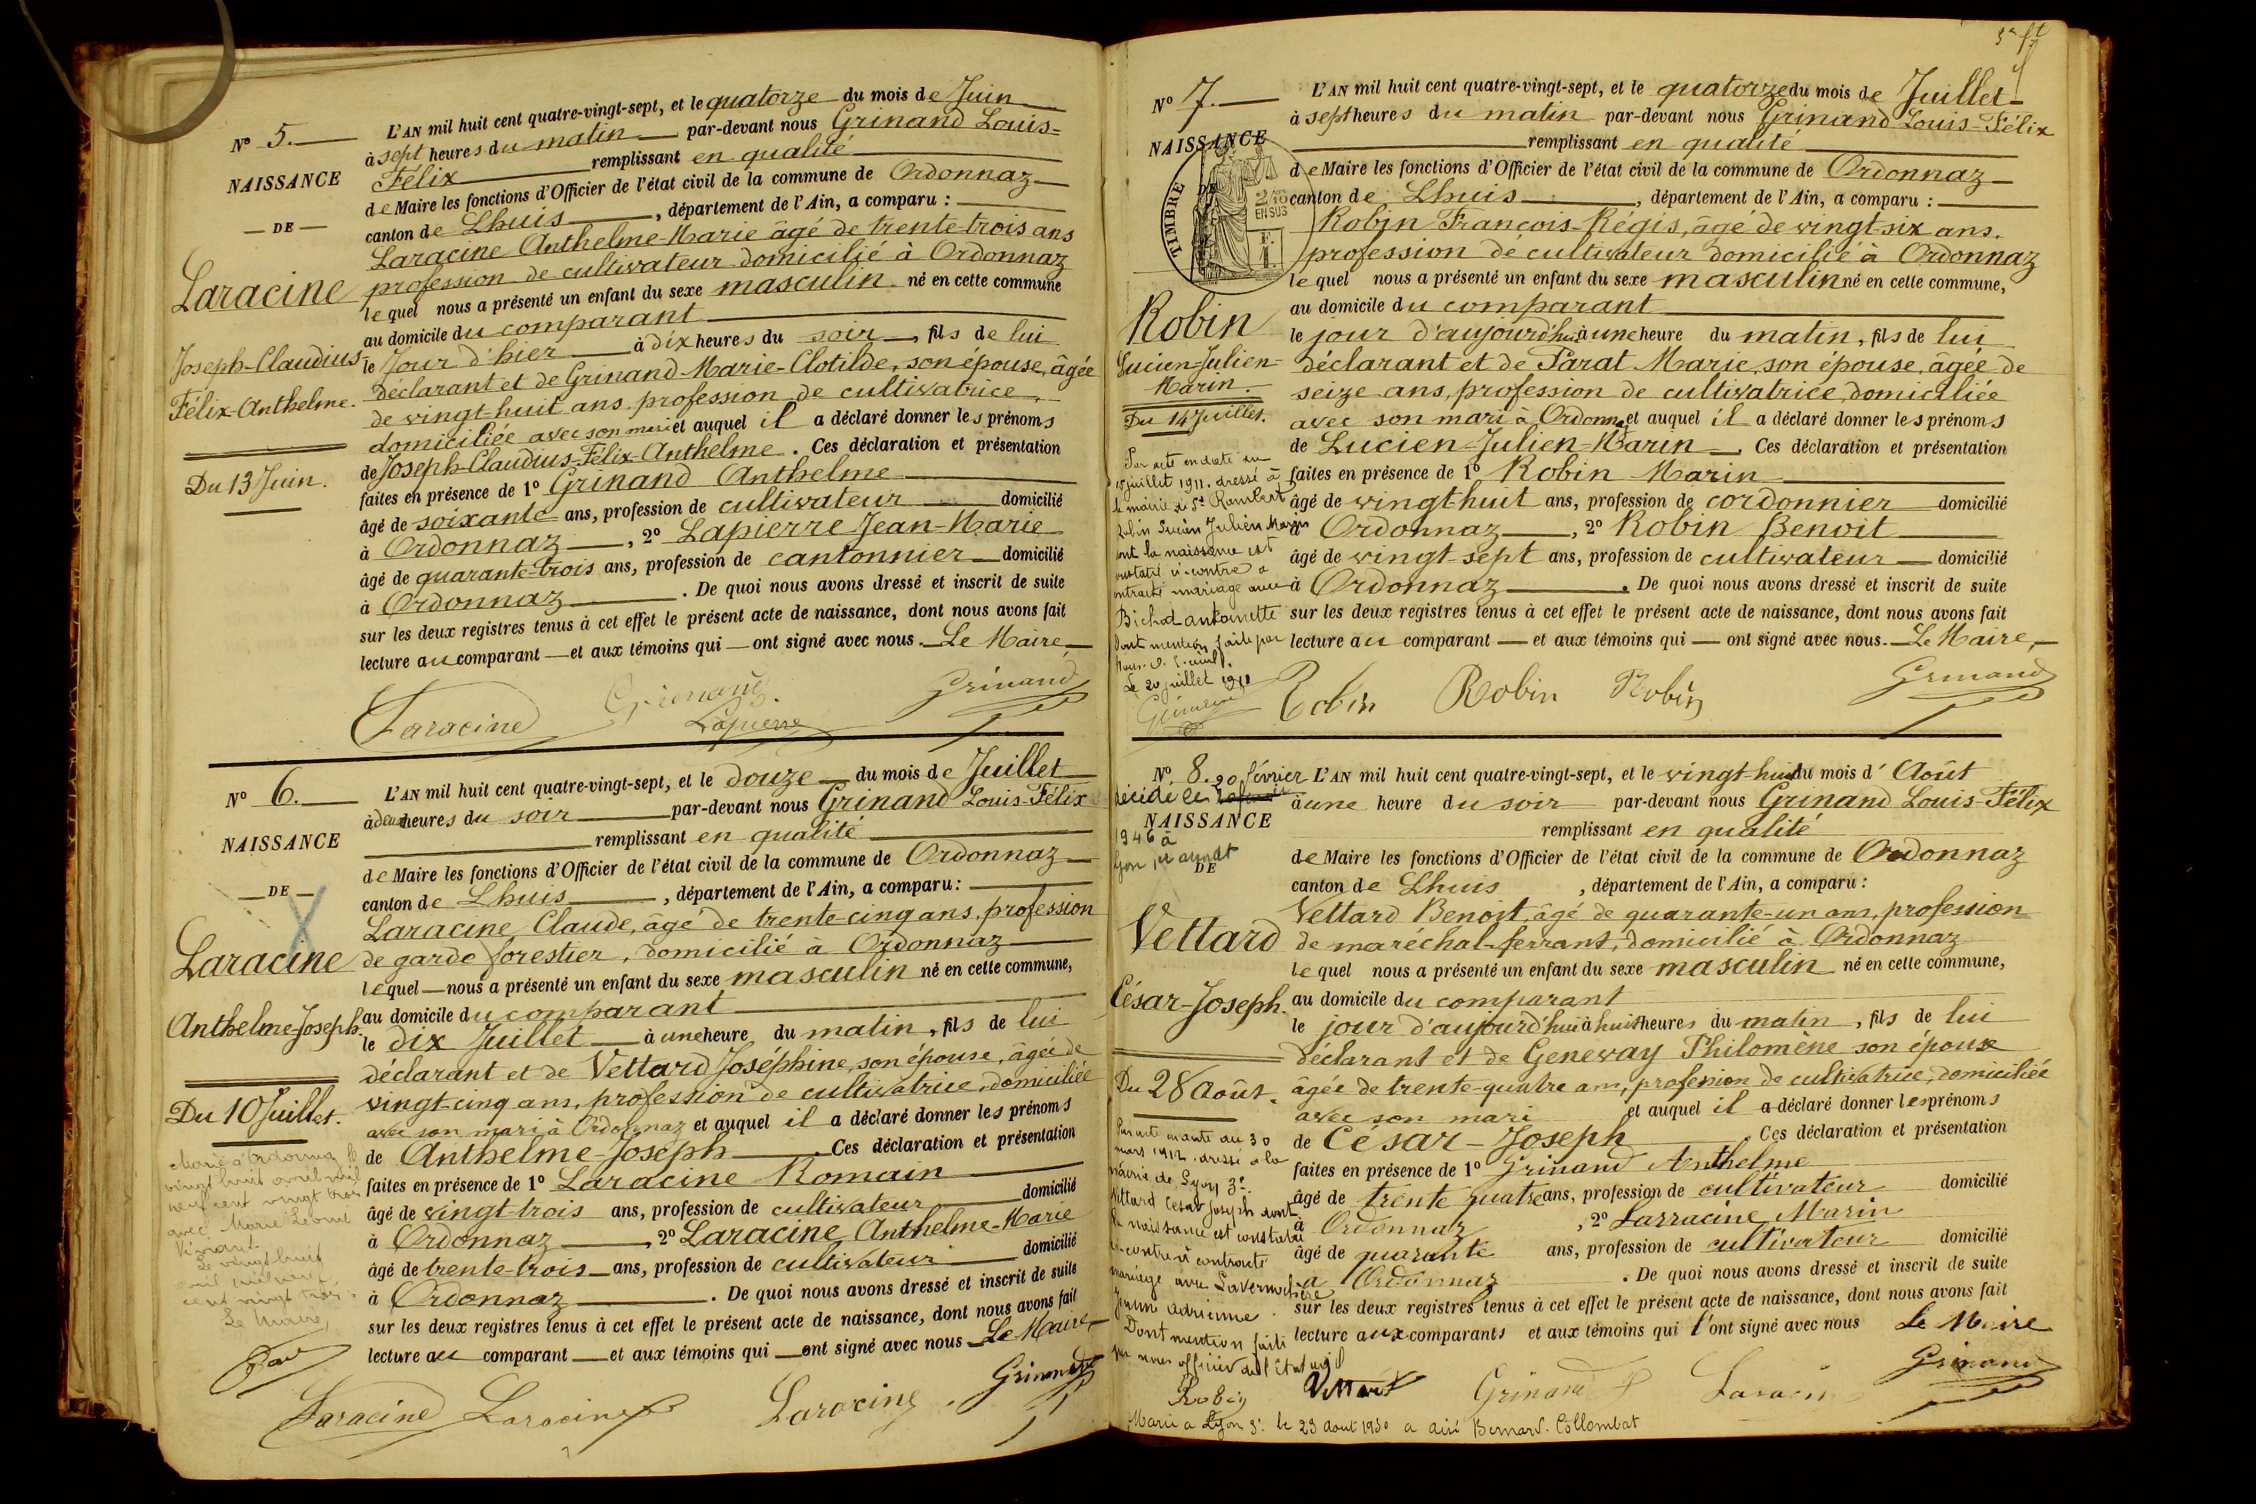 Nº 5.
NAISSANCE
DE
Laracine
Joseph-Claudius-
Félix-Anthelme.
Du 13 Juin.
L'AN mil huit cent quatre-vingt-sept, et le quatorze du mois de Juin
à sept heures du matin par-devant nous Grinand Louis-
Félix remplissant en qualité
de Maire les fonctions d'Officier de l'état civil de la commune de Ordonnaz
canton de Lhuis, département de l'Ain, a comparu :
Laracine Anthelme-Marie âgé de trente-trois ans
profession de cultivateur domicilié à Ordonnaz
lequel nous a présenté un enfant du sexe masculin né en cette commune
au domicile du comparant
le Jour d'hier à dix heures du soir, fils de lui
déclarant et de Grinand-Marie-Clotilde, son épouse, âgée
de vingt-huit ans profession de cultivatrice,
domiciliée avec son mari et auquel il a déclaré donner les prénoms
de Joseph-Claudius-Félix-Anthelme. Ces déclaration et présentation
faites en présence de 1º Grinand Anthelme
âgé de soixante ans, profession de cultivateur domicilié
à Ordonnaz, 2º Lapierre Jean-Marie
âgé de quarante-trois ans, profession de cantonnier domicilié
à Ordonnaz. De quoi nous avons dressé et inscrit de suite
sur les deux registres tenus à cet effet le présent acte de naissance, dont nous avons fait
lecture au comparant et aux témoins qui ont signé avec nous. Le Maire,
Laracine Grinand Lapierre Grinand
Nº 6.
NAISSANCE
DE
Laracine
Anthelme-Joseph.
Du 10 Juillet.
Marié à Ordonnaz le
vingt huit avril mil
neuf cent vingt trois
avec Marie Léonie
Le vingt huit
avril mil neuf
cent vingt trois.
Le Maire,
L'AN mil huit cent quatre-vingt-sept, et le douze du mois de Juillet
à deux heures du soir par-devant nous Grinand Louis-Félix
remplissant en qualité
de Maire les fonctions d'Officier de l'état civil de la commune de Ordonnaz
canton de Lhuis, département de l'Ain, a comparu :
Laracine Claude, âgé de trente-cinq ans, profession
de garde forestier, domicilié à Ordonnaz
lequel nous a présenté un enfant du sexe masculin né en cette commune,
au domicile du comparant
le dix Juillet à une heure du matin, fils de lui
déclarant et de Vettard Joséphine, son épouse, âgée de
vingt-cinq ans, profession de cultivatrice, domiciliée
avec son mari à Ordonnaz et auquel il a déclaré donner les prénoms
de Anthelme-Joseph. Ces déclaration et présentation
faites en présence de 1º Laracine Romain
âgé de vingt-trois ans, profession de cultivateur domicilié
à Ordonnaz, 2º Laracine Anthelme-Marie
âgé de trente-trois ans, profession de cultivateur domicilié
à Ordonnaz. De quoi nous avons dressé et inscrit de suite
sur les deux registres tenus à cet effet le présent acte de naissance, dont nous avons fait
lecture au comparant et aux témoins qui ont signé avec nous Le Maire,
Laracine Laracine Laracine Grinand
Nº 7.
NAISSANCE
DE
TIMBRE
2/10
EN SUS
Robin
Lucien-Julien-
Marin.
Du 14 Juillet.
Par acte en date du
15 juillet 1911. dressé à
la mairie de St Rambert
Robin Lucien Julien Marin
dont la naissance est
constatée ci-contre a
contracté mariage avec
Bichat antoinette
Dont mention faite par
Le 20 juillet 1911
L'AN mil huit cent quatre-vingt-sept, et le quatorze du mois de Juillet
à sept heures du matin par-devant nous Grinand Louis-Félix
remplissant en qualité
de Maire les fonctions d'Officier de l'état civil de la commune de Ordonnaz
canton de Lhuis, département de l'Ain, a comparu :
Robin François-Régis, âgé de vingt-six ans.
profession de cultivateur domicilié à Ordonnaz
lequel nous a présenté un enfant du sexe masculin né en cette commune,
au domicile du comparant
le jour d'aujourd'hui à une heure du matin, fils de lui
déclarant et de Parat Marie, son épouse, âgée de
seize ans, profession de cultivatrice, domiciliée
avec son mari à Ordonnaz et auquel il a déclaré donner les prénoms
de Lucien-Julien-Marin. Ces déclaration et présentation
faites en présence de 1º Robin Marin
âgé de vingt-huit ans, profession de cordonnier domicilié
à Ordonnaz, 2º Robin Benoit
âgé de vingt-sept ans, profession de cultivateur domicilié
à Ordonnaz. De quoi nous avons dressé et inscrit de suite
sur les deux registres tenus à cet effet le présent acte de naissance, dont nous avons fait
lecture au comparant et aux témoins qui ont signé avec nous. Le Maire,
Robin Robin Robin Grinand
Nº 8.
20 février
décédé le
NAISSANCE
1946 à
Lyon
DE
Vettard
César-Joseph.
Du 28 Août.
Par acte en date du 30
mars 1912. dressé à la
mairie de Lyon 3e.
Vettard César Joseph dont
la naissance est constatée
ci-contre a contracté
mariage avec
adrienne.
Dont mention faite
par nous officier de l'état civil
Robin
L'AN mil huit cent quatre-vingt-sept, et le vingt-huit du mois d'Août
à une heure du soir par-devant nous Grinand Louis-Félix
remplissant en qualité
de Maire les fonctions d'Officier de l'état civil de la commune de Ordonnaz
canton de Lhuis, département de l'Ain, a comparu :
Vettard Benoit, âgé de quarante-un ans, profession
de maréchal-ferrant, domicilié à Ordonnaz
lequel nous a présenté un enfant du sexe masculin né en cette commune,
au domicile du comparant
le jour d'aujourd'hui à huit heures du matin, fils de lui
déclarant et de Geneway Philomène son épouse
âgée de trente-quatre ans, profession de cultivatrice, domiciliée
avec son mari et auquel il a déclaré donner les prénoms
de César-Joseph. Ces déclaration et présentation
faites en présence de 1º Grinand Anthelme
âgé de trente quatre ans, profession de cultivateur domicilié
à Ordonnaz, 2º Larracine Marin
âgé de quarante ans, profession de cultivateur domicilié
à Ordonnaz. De quoi nous avons dressé et inscrit de suite
sur les deux registres tenus à cet effet le présent acte de naissance, dont nous avons fait
lecture aux comparants et aux témoins qui l'ont signé avec nous Le Maire
Vettard Grinand Grinand
Marié à Lyon 3e. le 23 août 1930 a Bernard. Collombat